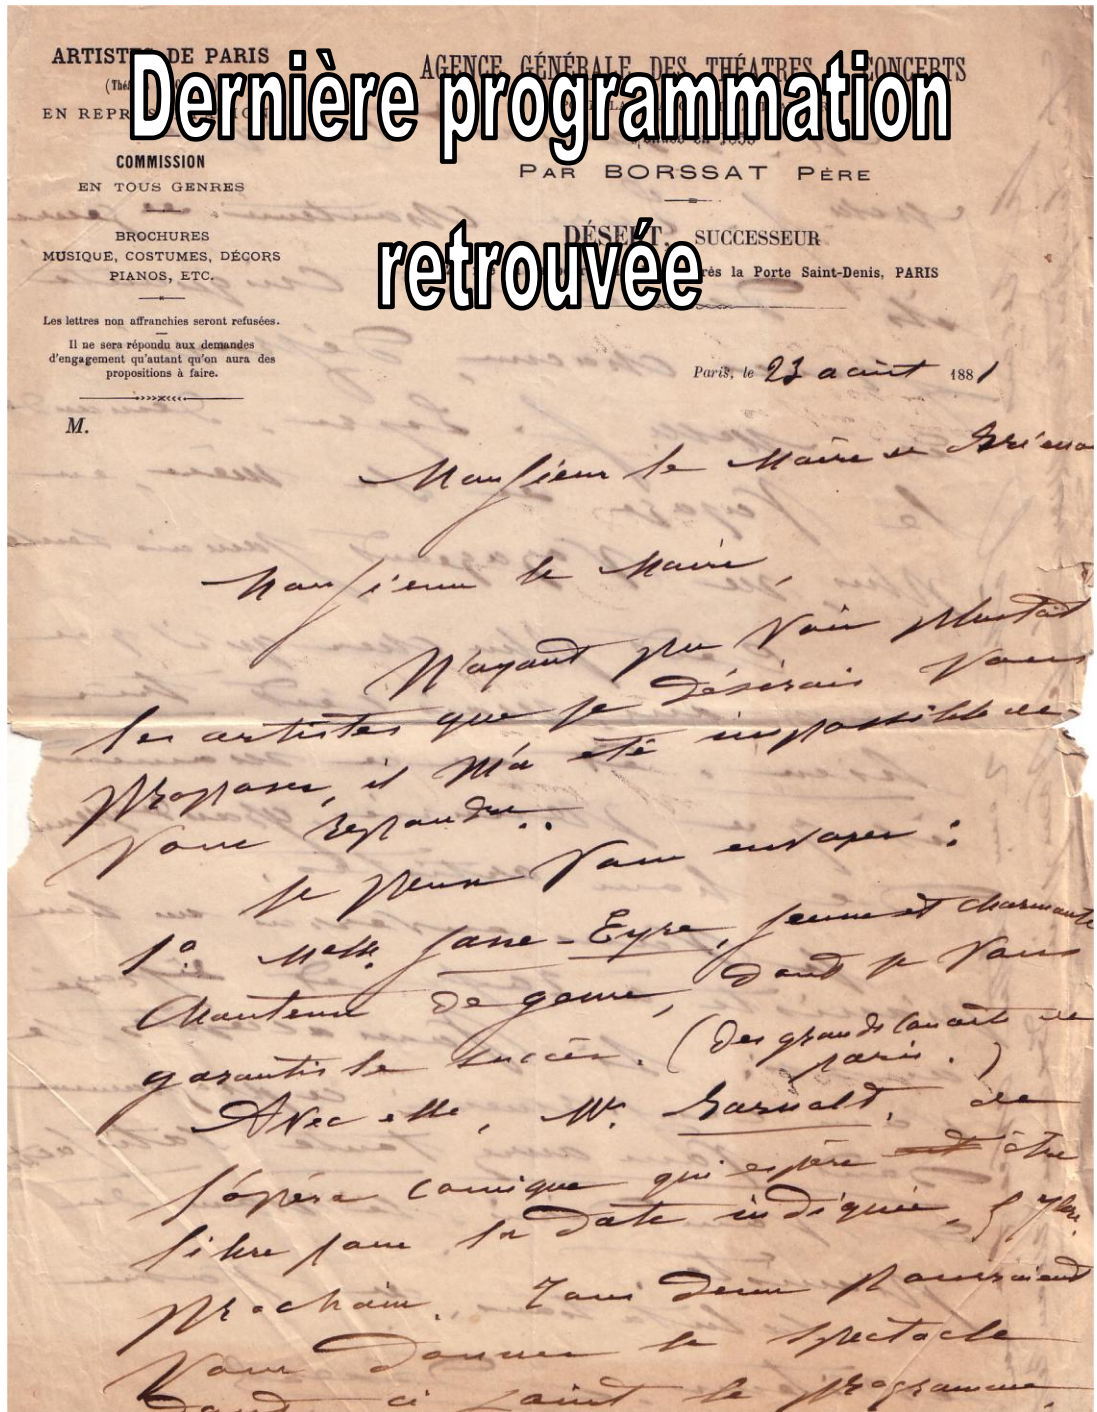 Dernière programmation
retrouvée
ARTISTES DE PARIS
EN REPRÉSENTATION
COMMISSION
EN TOUS GENRES
BROCHURES
MUSIQUE, COSTUMES, DÉCORS
PIANOS, ETC.
Les lettres non affranchies seront refusées.
Il ne sera répondu aux demandes
d'engagement qu'autant qu'on aura des
propositions à faire.
M.
AGENCE GÉNÉRALE DES THÉATRES & CONCERTS
PAR BORSSAT PÈRE
DÉSERT, SUCCESSEUR
près la Porte Saint-Denis, PARIS
Paris, le 23 août 1881
Monsieur le Maire de
Monsieur le Maire,
N'ayant pu voir plustôt
les artistes que je désirais vous
proposer, il m'a été impossible de
vous repondre..
je peux vous envoyer :
1º. Melle. Jane-Eyre, jeune et charmante
chanteuse de genre, dont je vous
garantis le succès. (des grands concerts de
paris.)
Avec elle, Mr. de
l'opéra comique qui espère être
libre pour la date indiquée, 5 7bre.
prochain. Tous deux pourraient
vous donner le spectacle
dont ci joint le programme.